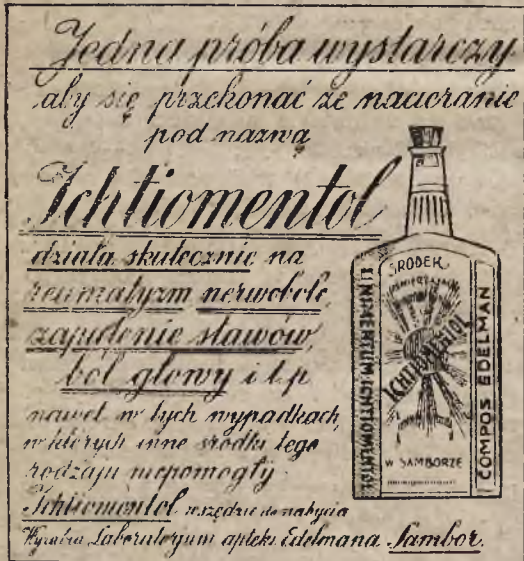 Jedna próba wystarczy
aby się przekonać że nacieranie
pod nazwą
Ichtiomentol
działa skutecznie na
reumatyzm nerwobole,
zapalenie stawów,
ból głowy i t.p
nawet w tych wypadkach,
w których inne środki tego
rodzaju niepomogły.
Ichtiomentol wszędzie do nabycia
Wyrabia Laboratoryum apteki Edelmana Sambor.
ŚRODEK
ICHTIOMENTOL
W SAMBORZE
LINIMENTUM ICHTIOMENTOLI
COMPOS EDELMAN